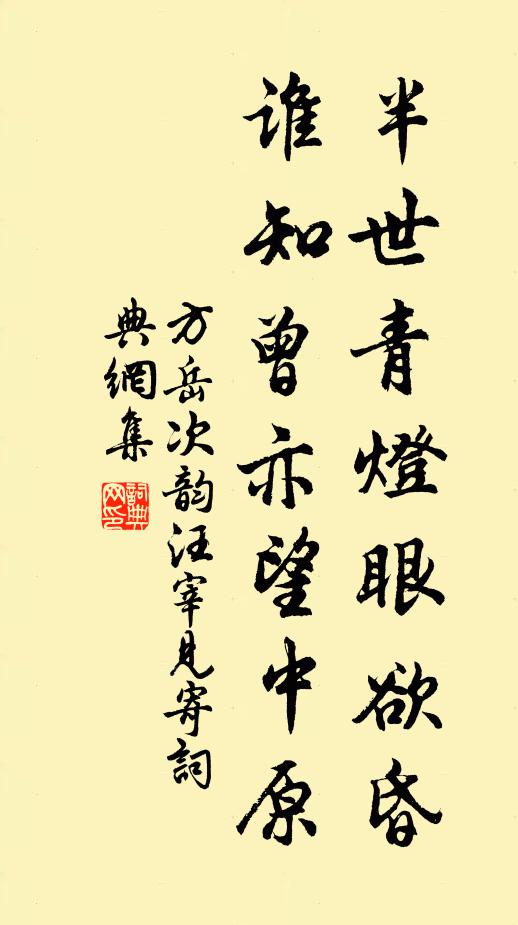 半世青燈眼欲昏
誰知曾亦望中原
方岳次韵汪宰見寄詞
典網集
詞典
网印